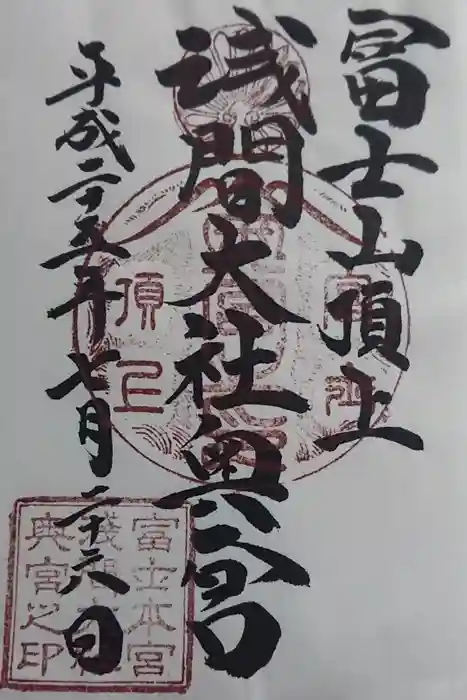 冨士山頂上
浅間大社奥宮
平成二十五年七月二十六日
頂上
富士本宮
浅間大社
奥宮之印